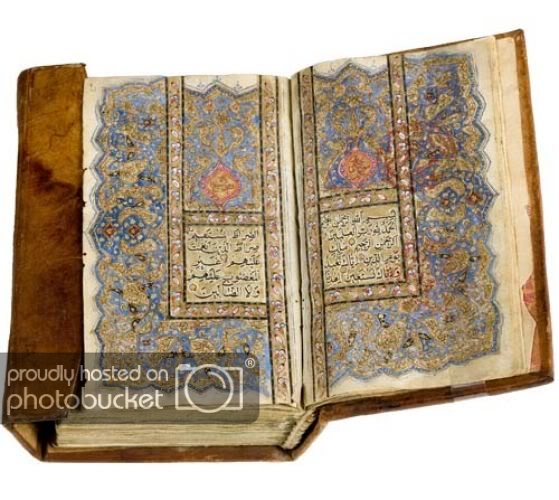 بسم الله الرحمن الرحيم
الحمد لله رب العالمين
الرحمن الرحيم مالك
يوم الدين اياك نعبد
واياك نستعين اهدنا
الصراط المستقيم
صراط الذين انعمت
عليهم غير
المغضوب عليهم
ولا الضالين
proudly hosted on
photobucket